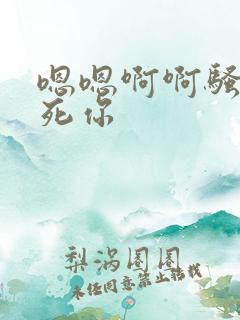 嗯嗯啊啊骚
死你
梨涡圈圈
未经同意禁止转载